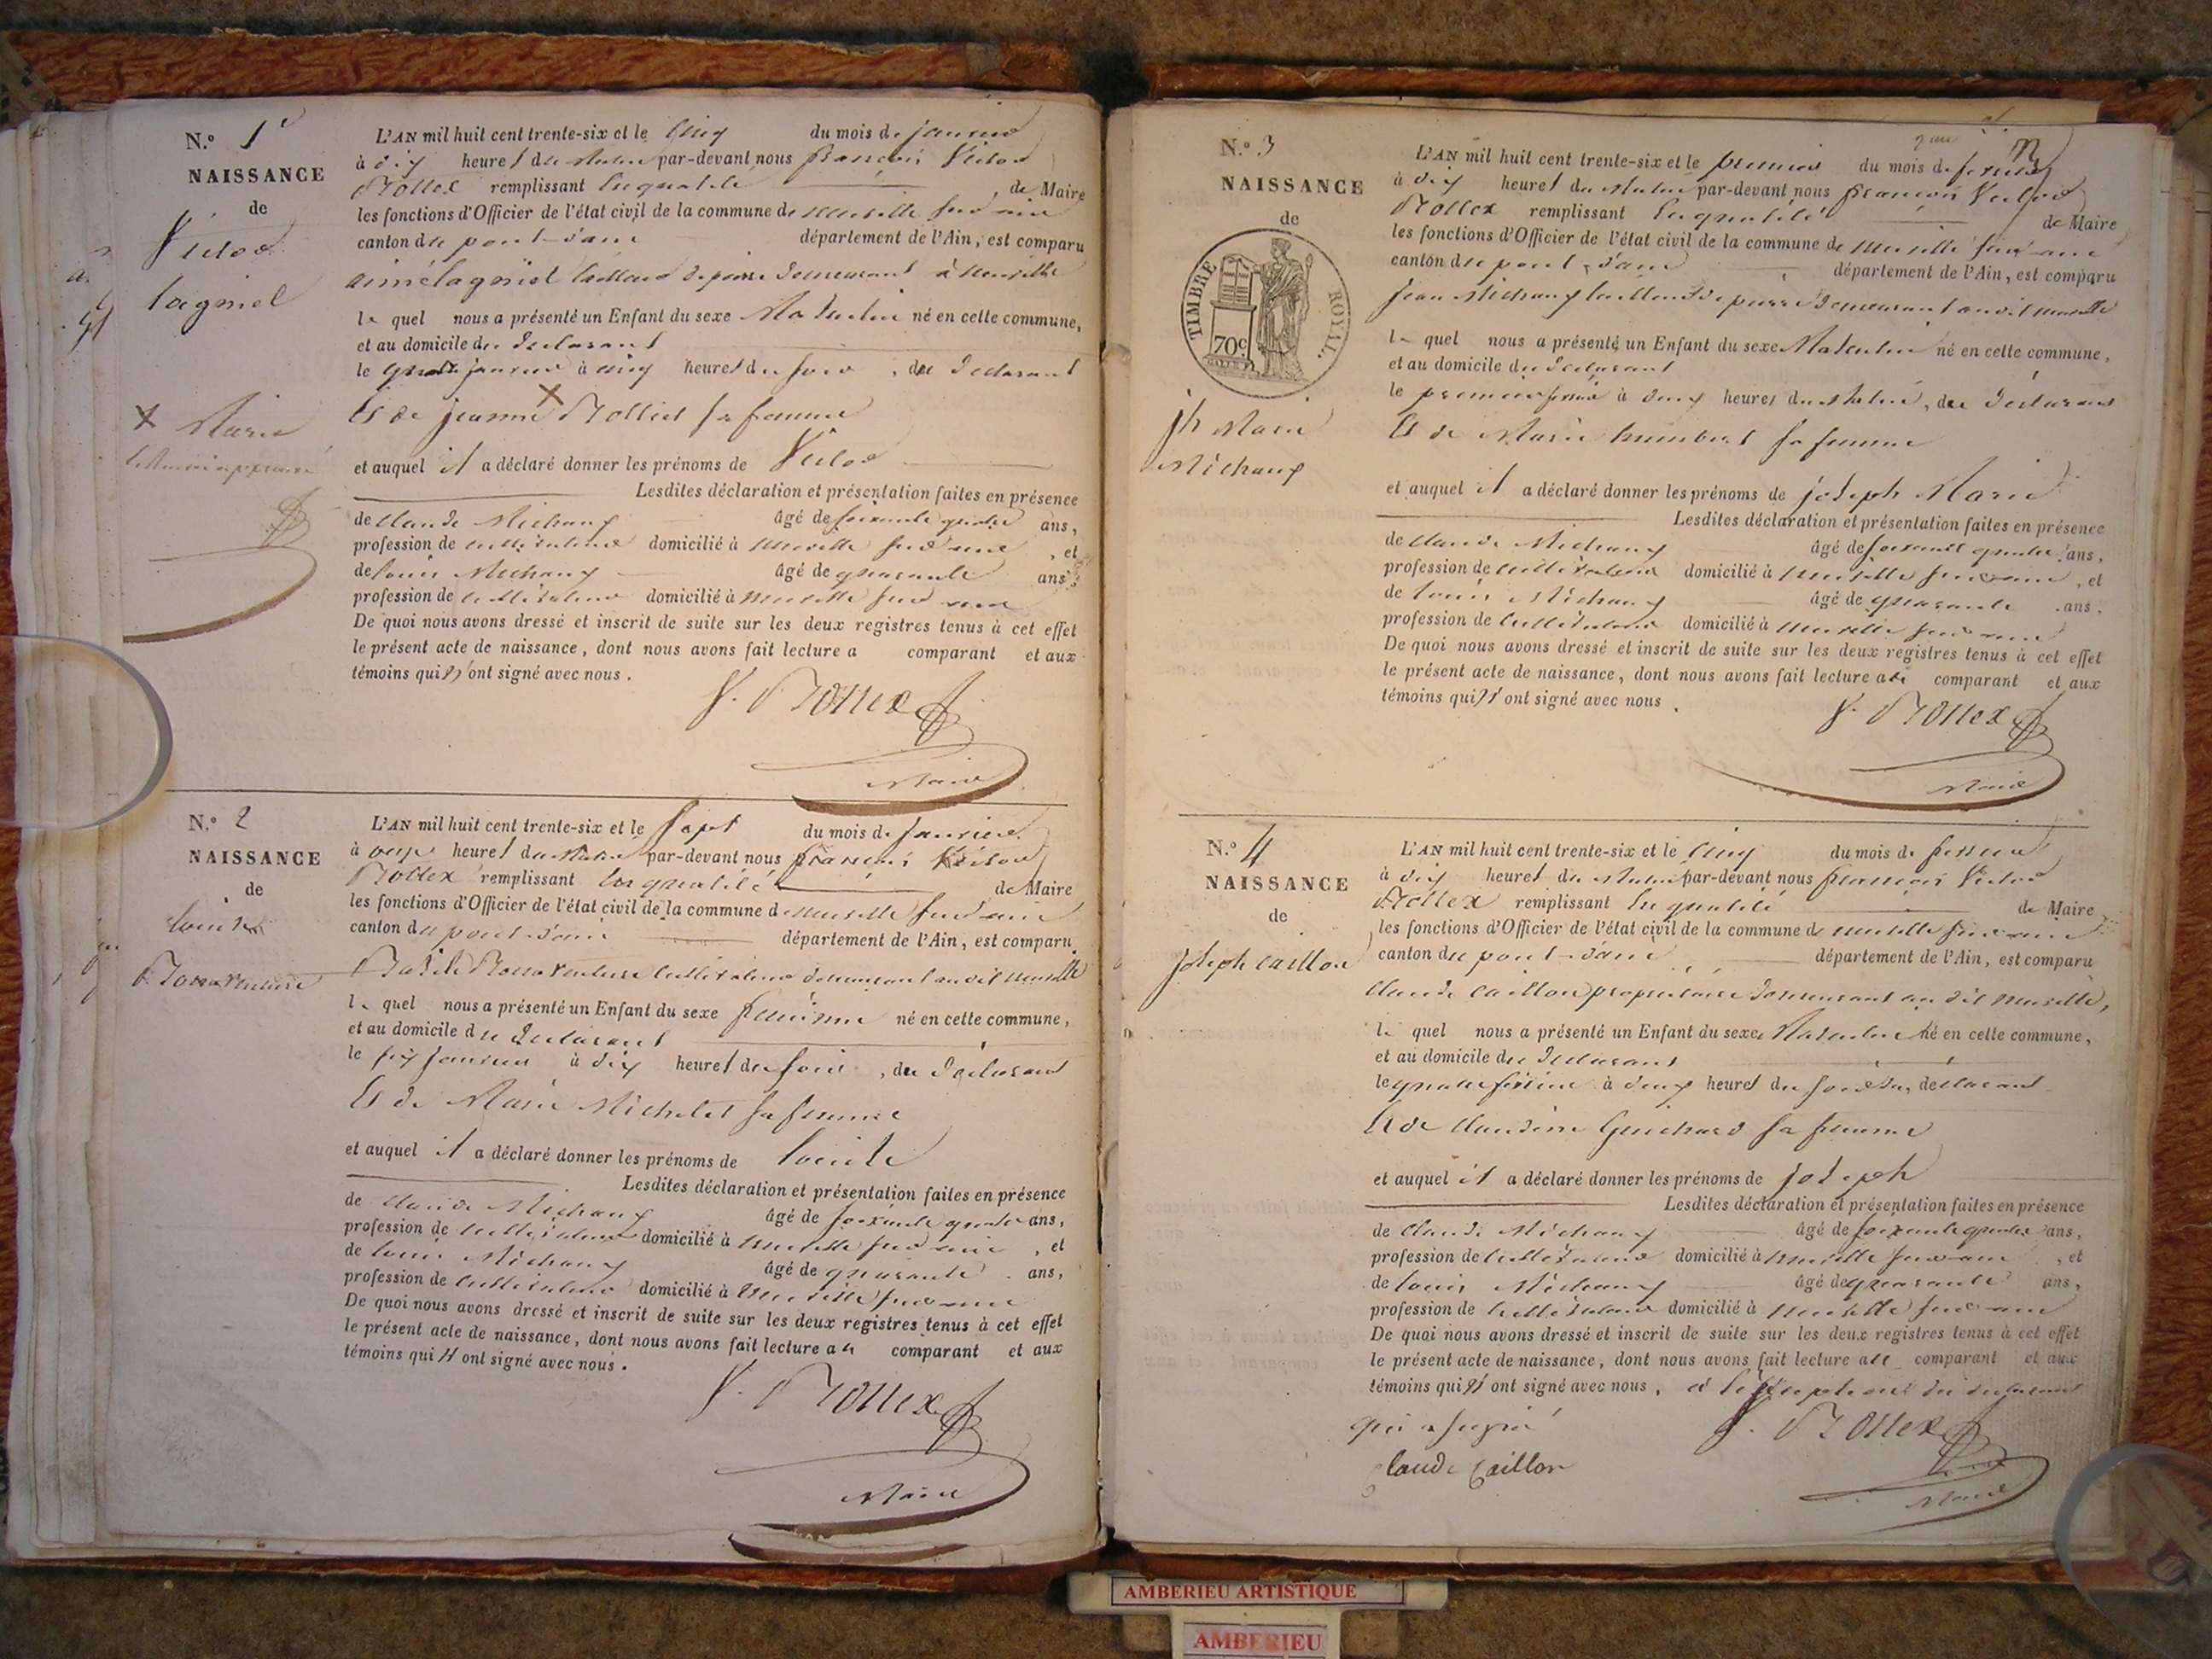 N.º 1er
NAISSANCE
de
Victor
lagniel
X Marie
L'AN mil huit cent trente-six et le cinq du mois de janvier
à dix heures du matin par-devant nous françois Victor
Rollex remplissant en qualité de Maire
les fonctions d'Officier de l'état civil de la commune de neuville sur ain
canton du pont-d'ain département de l'Ain, est comparu
aimé lagniel tailleur de pierre demeurant à Neuville
le quel nous a présenté un Enfant du sexe Masculin né en cette commune,
et au domicile du declarant
le quatre janvier à cinq heures du soir, du declarant
Et de jeanne X Rolliet sa femme
et auquel il a déclaré donner les prénoms de Victor
Lesdites déclaration et présentation faites en présence
de claude Michaux âgé de soixante quatre ans,
profession de cultivateur domicilié à neuville sur ain, et
de louis Michaux âgé de quarante ans,
profession de cultivateur domicilié à neuville sur ain
De quoi nous avons dressé et inscrit de suite sur les deux registres tenus à cet effet
le présent acte de naissance, dont nous avons fait lecture a comparant et aux
témoins qui n'ont signé avec nous.
V. Rollex
Maire
N.º 2
NAISSANCE
de
louise
Bonaventure
L'AN mil huit cent trente-six et le sept du mois de janvier
à onze heures du matin par-devant nous françois Victor
Rollex remplissant en qualité de Maire
les fonctions d'Officier de l'état civil de la commune de neuville sur ain
canton du pont-d'ain département de l'Ain, est comparu
Bonaventure cultivateur demeurant au dit neuville
le quel nous a présenté un Enfant du sexe feminin né en cette commune,
et au domicile du declarant
le six janvier à dix heures du soir, du declarant
Et de Marie Michelet sa femme
et auquel il a déclaré donner les prénoms de louise
Lesdites déclaration et présentation faites en présence
de claude Michaux âgé de soixante quatre ans,
profession de cultivateur domicilié à neuville sur ain, et
de louis Michaux âgé de quarante ans,
profession de cultivateur domicilié à neuville sur ain
De quoi nous avons dressé et inscrit de suite sur les deux registres tenus à cet effet
le présent acte de naissance, dont nous avons fait lecture au comparant et aux
témoins qui n'ont signé avec nous.
V. Rollex
Maire
N.º 3
NAISSANCE
de
TIMBRE ROYAL
70c
jh Marie
Michaux
L'AN mil huit cent trente-six et le premier du mois de fevrier
à dix heures du matin par-devant nous françois Victor
Rollex remplissant en qualité de Maire
les fonctions d'Officier de l'état civil de la commune de neuville sur ain
canton du pont-d'ain département de l'Ain, est comparu
jean Michaux tailleur de pierre demeurant au dit neuville
le quel nous a présenté un Enfant du sexe Masculin né en cette commune,
et au domicile du declarant
le premier fevrier à deux heures du matin, du declarant
Et de Marie humbert sa femme
et auquel il a déclaré donner les prénoms de joseph Marie
Lesdites déclaration et présentation faites en présence
de claude Michaux âgé de soixante quatre ans,
profession de cultivateur domicilié à neuville sur ain, et
de louis Michaux âgé de quarante ans,
profession de cultivateur domicilié à neuville sur ain
De quoi nous avons dressé et inscrit de suite sur les deux registres tenus à cet effet
le présent acte de naissance, dont nous avons fait lecture au comparant et aux
témoins qui n'ont signé avec nous.
V. Rollex
Maire
N.º 4
NAISSANCE
de
joseph caillon
L'AN mil huit cent trente-six et le cinq du mois de fevrier
à dix heures du matin par-devant nous françois Victor
Rollex remplissant en qualité de Maire
les fonctions d'Officier de l'état civil de la commune de neuville sur ain
canton du pont-d'ain département de l'Ain, est comparu
claude caillon proprietaire demeurant au dit neuville,
le quel nous a présenté un Enfant du sexe Masculin né en cette commune,
et au domicile du declarant
le quatre fevrier à deux heures du soir du declarant
Et de claudine Guichard sa femme
et auquel il a déclaré donner les prénoms de joseph
Lesdites déclaration et présentation faites en présence
de claude Michaux âgé de soixante quatre ans,
profession de cultivateur domicilié à neuville sur ain, et
de louis Michaux âgé de quarante ans,
profession de cultivateur domicilié à neuville sur ain
De quoi nous avons dressé et inscrit de suite sur les deux registres tenus à cet effet
le présent acte de naissance, dont nous avons fait lecture au comparant et aux
témoins qui n'ont signé avec nous, à l'exception du declarant
qui a signé
claude Caillon
V. Rollex
Maire
AMBERIEU ARTISTIQUE
AMBERIEU